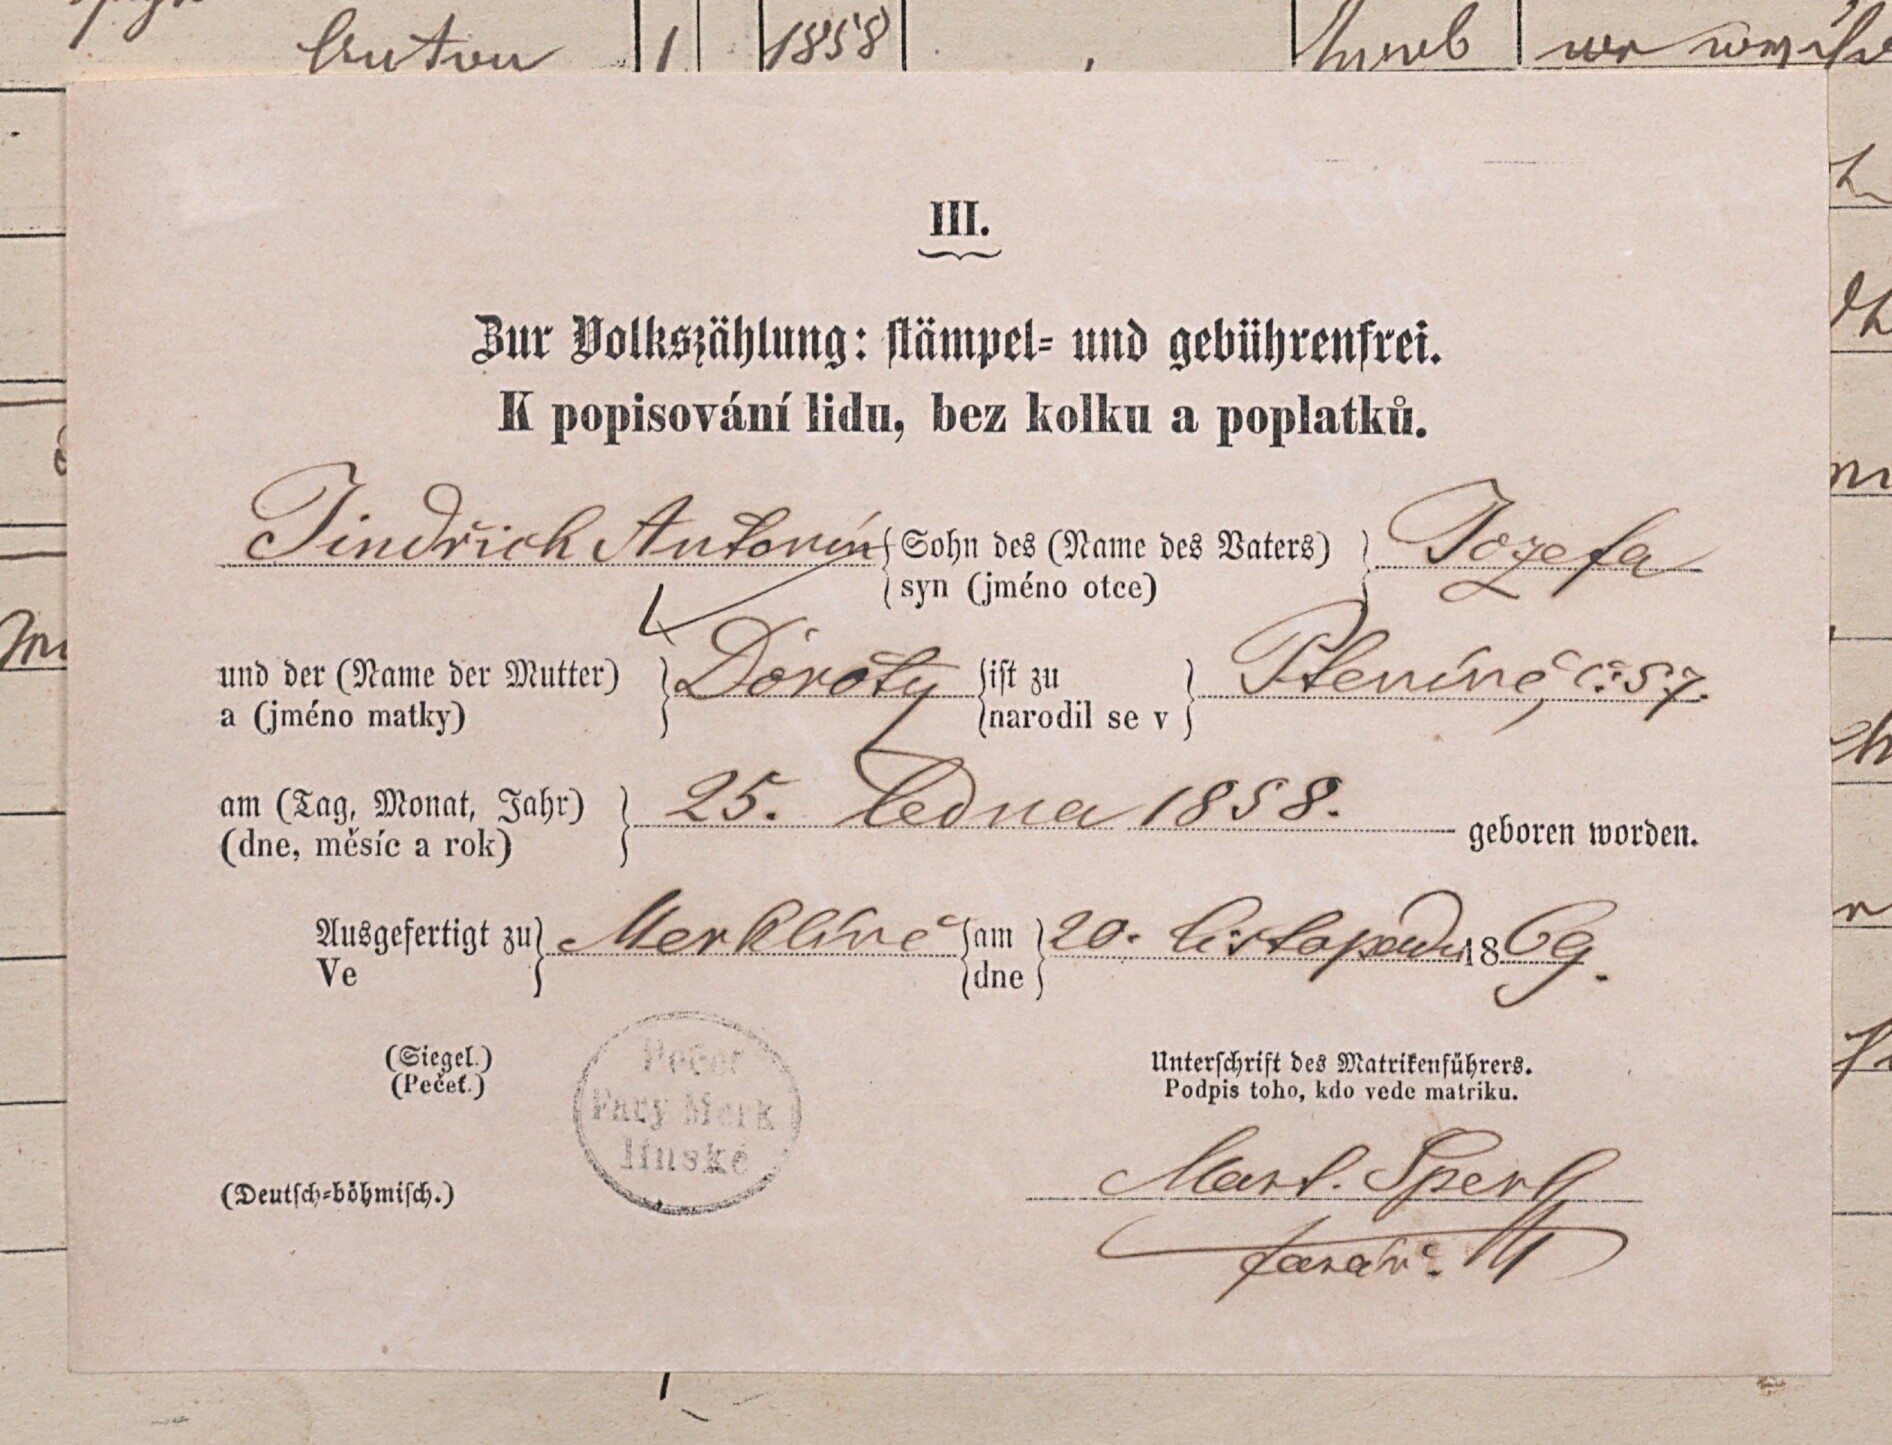 Anton 1 1858
III.
Zur Volkszählung: stämpel- und gebührenfrei.
K popisování lidu, bez kolku a poplatků.
Jindřich Antonín Sohn des (Name des Vaters) Jozefa
syn (jméno otce)
und der (Name der Mutter) Doroty ist zu Pteníně, č. 57.
a (jméno matky) narodil se v
am (Tag, Monat, Jahr) 25. ledna 1858. geboren worden.
(dne, měsíc a rok)
Ausgefertigt zu Merklíně am 20. listopadu 1869.
Ve dne
(Siegel.)
(Pečeť.)
Pečeť
Fary Merk
línské
Unterschrift des Matrikenführers.
Podpis toho, kdo vede matriku.
(Deutsch-böhmisch.)
Mart. Sperl
farář.